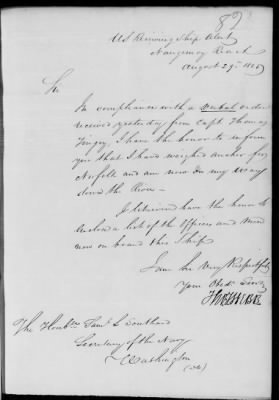 82
US Receiving Ship Alert
Nangemoy Reach
August 29th 1825
Sir
In compliance with a verbal order
received yesterday from Capt. Thomas
Tingey, I have the honor to inform
you that I have weighed anchor for
Norfolk and am now on my way
down the River.
I likewise have the honor to
enclose a list of the Officers and Men
now on board this Ship
I am Sir Very Respectfully
Your Obdt Servt
The Honble Saml L Southard
Secretary of the Navy
Washington